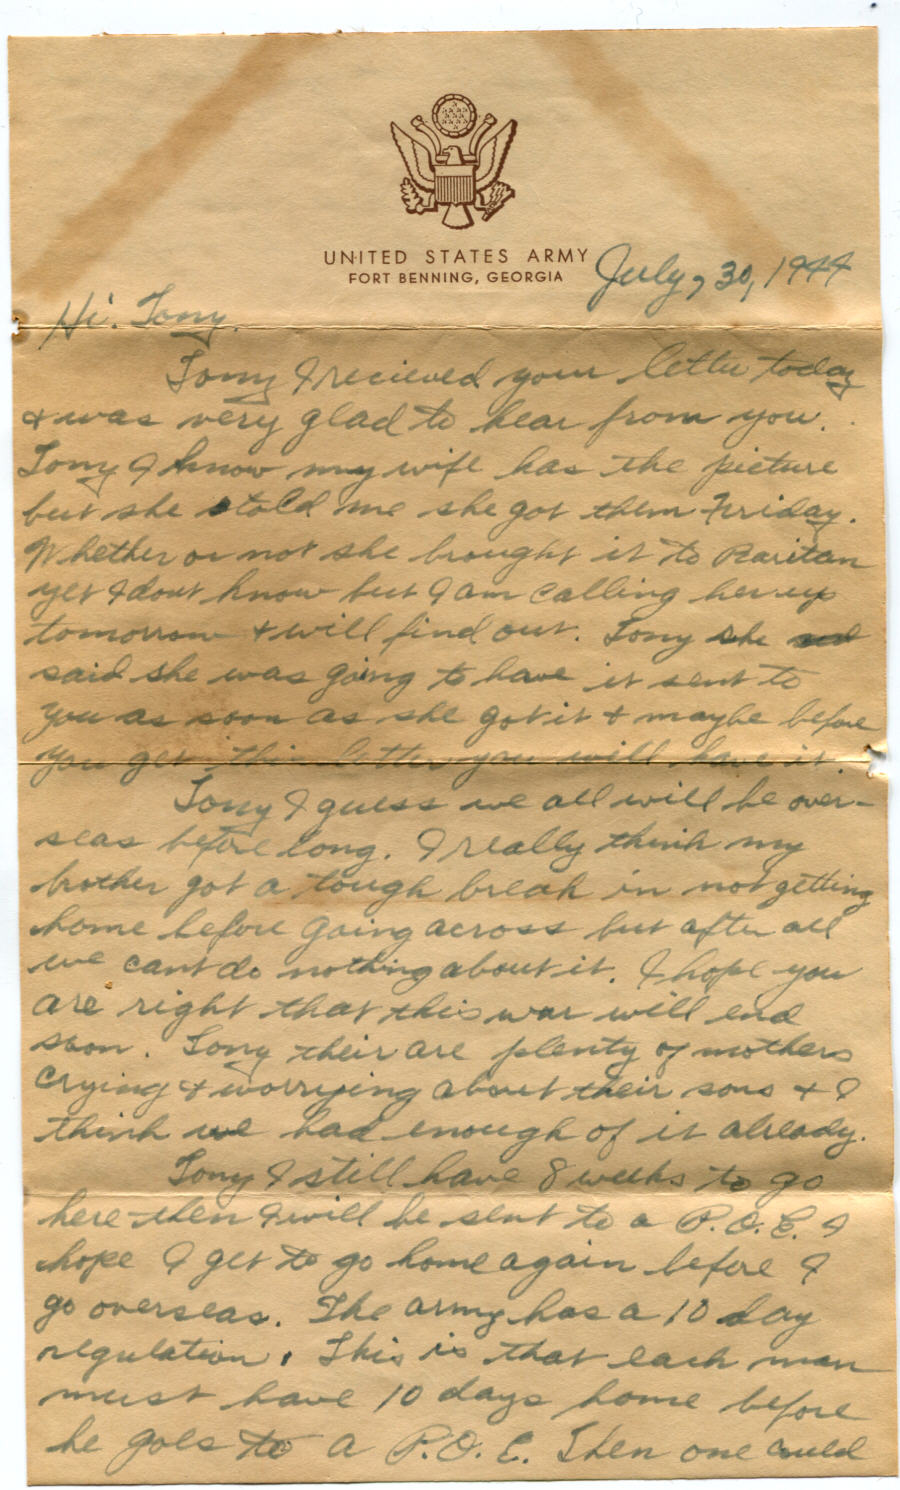 UNITED STATES ARMY
FORT BENNING, GEORGIA
July, 30, 1944
Hi. Tony.
Tony I recieved your letter today
& was very glad to hear from you.
Tony I know my wife has the picture
but she told me she got them Friday.
Whether or not she brought it to Raritan
yet I dont know but I am calling her up
tomorrow & will find out. Tony she
said she was going to have it sent to
you as soon as she got it & maybe before
you get this letter you will have it.
Tony I guess we all will be over-
seas before long. I really think my
brother got a tough break in not getting
home before going across but after all
we cant do nothing about it. I hope you
are right that this war will end
soon. Tony their are plenty of mothers
crying & worrying about their sons & I
think we had enough of it already.
Tony I still have 8 weeks to go
here then I will be sent to a P.O.E. I
hope I get to go home again before I
go overseas. The army has a 10 day
regulation. This is that each man
must have 10 days home before
he goes to a P.O.E. Then one could